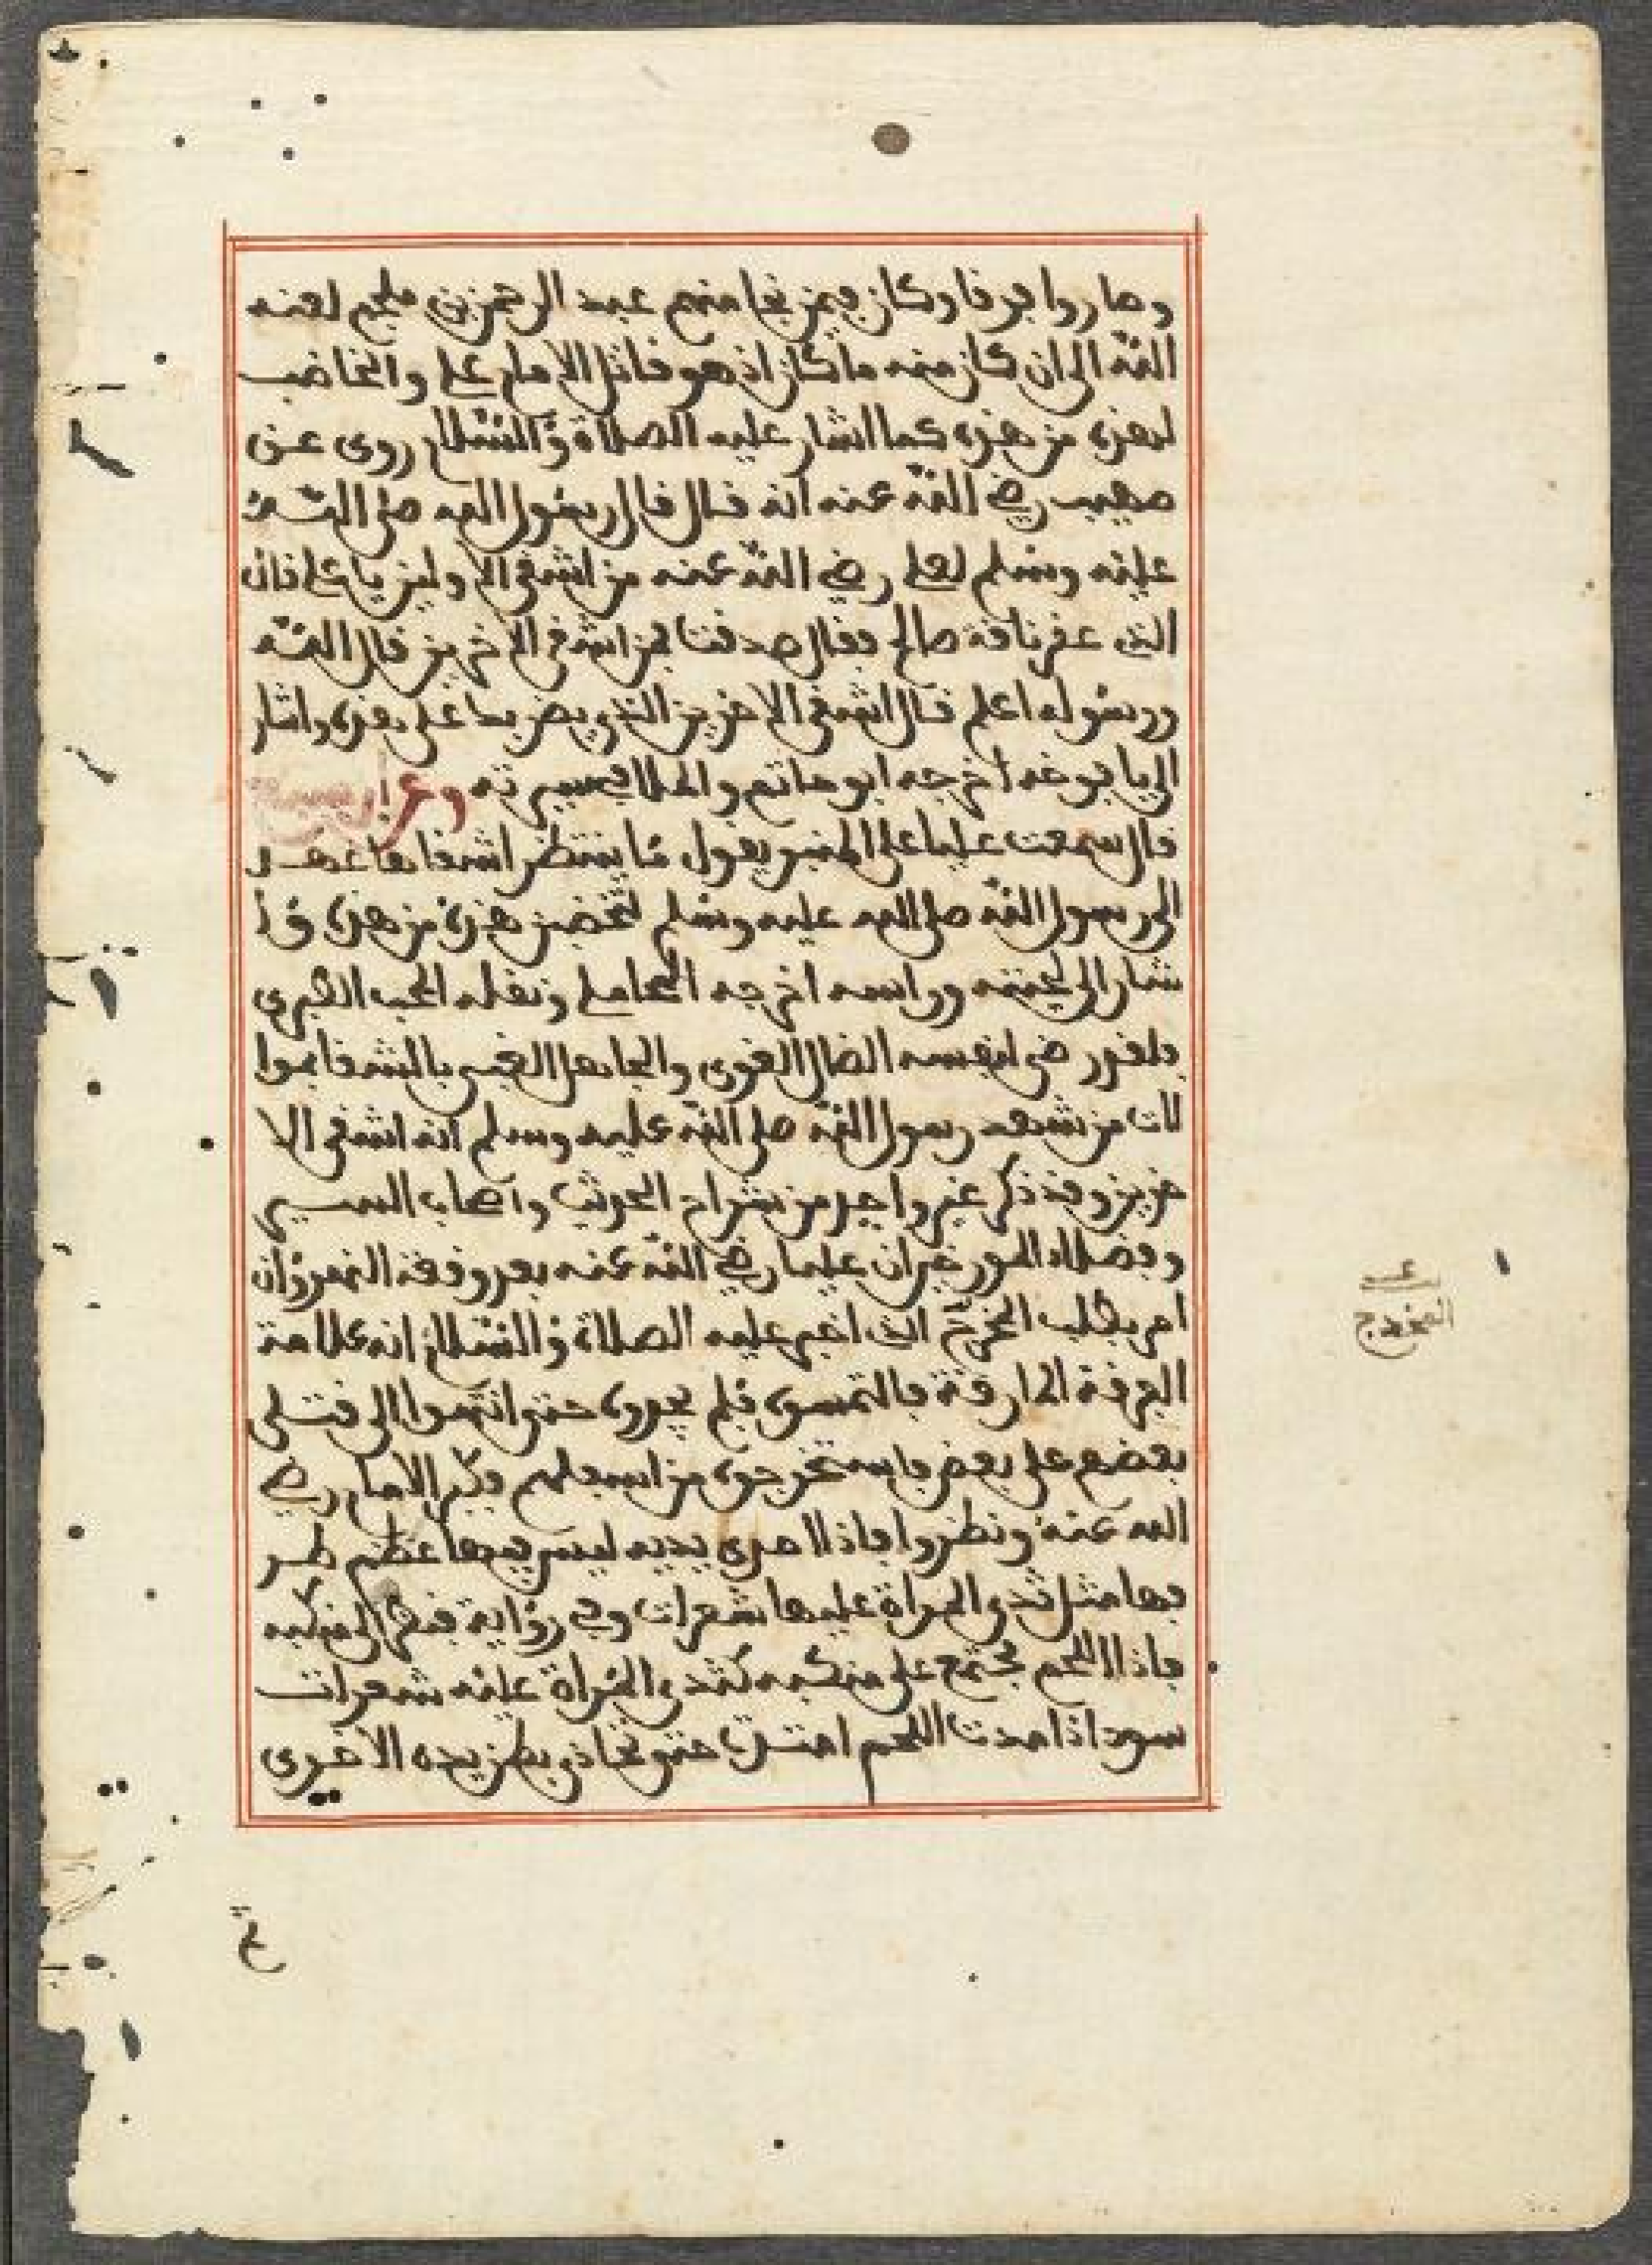 وصاروا فرقا وكان فيمن نجا منهم عبد الرحمن بن ملجم لعنه
الله الى ان كان منه ما كان اذ هو قاتل الامام علي والخاضب
لهذه من هذه كما اشار عليه الصلاة والسلام روى عن
صهيب رضي الله عنه انه قال قال رسول الله صلى الله
عليه وسلم لعلي رضي الله عنه من اشقى الاولين يا علي قال
الذي عقر ناقة صالح فقال صدقت فمن اشقى الاخرين قال الله
ورسوله اعلم قال اشقى الاخرين الذي يضربك على هذه واشار
الى يافوخه اخرجه ابو حاتم والملا في سيرته وعن
قال سمعت عليا على المنبر يقول ما ينتظر اشقاها عهد
الي رسول الله صلى الله عليه وسلم لتخضبن هذه من هذه وا
شار الى لحيته وراسه اخرجه المحاملي ونقله المحب الطبري
فلقد رضي لنفسه الضال الغوي والجاهل الغبي بالشقا بموا
لات من شهد رسول الله صلى الله عليه وسلم انه اشقى الا
خرين وقد ذكر غير واحد من شراح الحديث واصحاب السير
وفضلاء المورخين ان عليا رضي الله عنه بعد وقعة النهروان
امر بطلب المخدج الذي اخبر عليه الصلاة والسلام انه علامة
الفرقة المارقة فالتمسوه فلم يجدوه حتى انتهوا الى قتلى
بعضهم على بعض فاستخرجوه من اسفلهم فكبر الامام رضي
الله عنه ونظروا فاذا احدى يديه ليس فيها عظم طر
فها مثل ثدي المراة عليها شعرات وفي رواية فنظر الى منكبه
فاذا اللحم مجتمع على منكبه كثدي المراة عليه شعرات
سود اذا مدت اللحم امتدت حتى تحاذي بطن يده الاخرى
المخدج